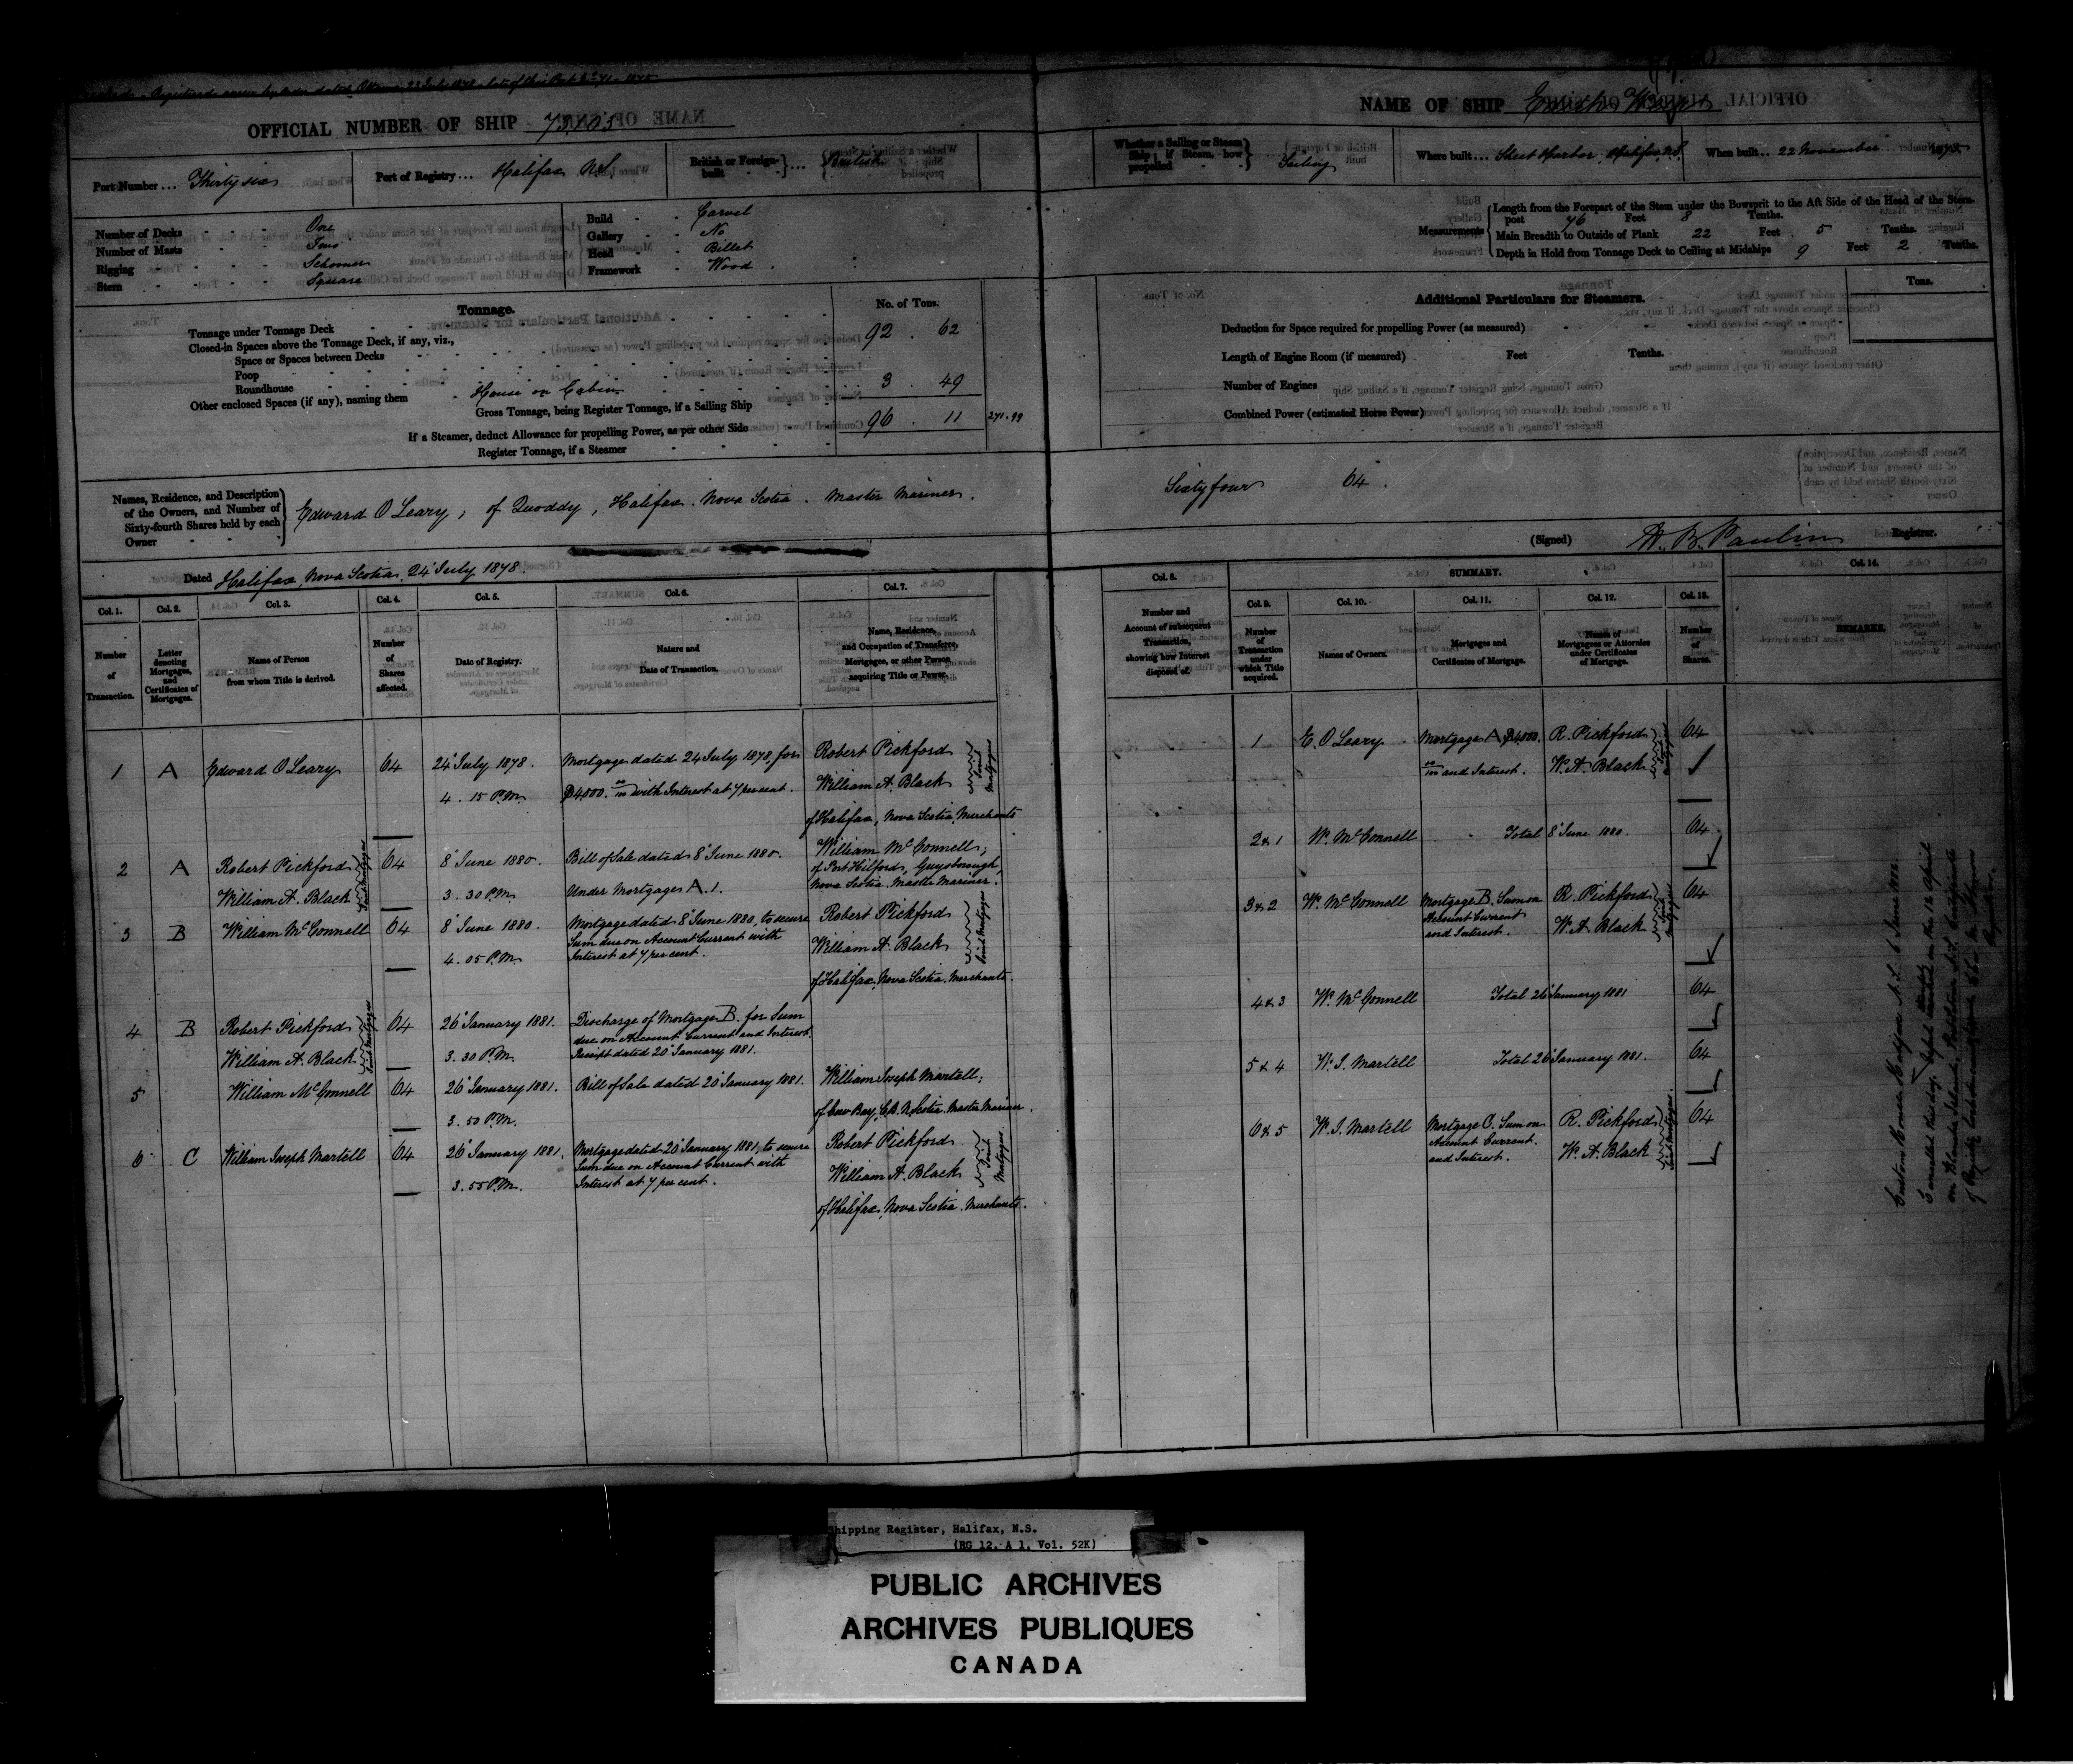 Registered anew by order dated Ottawa 23 July 1878
OFFICIAL NUMBER OF SHIP
NAME OF SHIP
Port Number ... Thirty six
Port of Registry ... Halifax N.S.
British or Foreign-built ... British
Whether a Sailing or Steam Ship; if Steam, how propelled Sailing
Where built ... Sheet Harbor, Halifax, N.S.
When built ... 22 November
Number of Decks One
Number of Masts Two
Rigging Schooner
Stern Square
Build Carvel
Gallery No
Head Billet
Framework Wood
Measurements
Length from the Forepart of the Stem under the Bowsprit to the Aft Side of the Head of the Stern-post 76 Feet 8 Tenths.
Main Breadth to Outside of Plank 22 Feet 5 Tenths.
Depth in Hold from Tonnage Deck to Ceiling at Midships 9 Feet 2 Tenths.
Tonnage.
No. of Tons.
Tonnage under Tonnage Deck 92 . 62
Closed-in Spaces above the Tonnage Deck, if any, viz.,
Space or Spaces between Decks
Poop
Roundhouse
Other enclosed Spaces (if any), naming them House on Cabin 3 . 49
Gross Tonnage, being Register Tonnage, if a Sailing Ship 96 . 11
271.99
If a Steamer, deduct Allowance for propelling Power, as per other Side
Register Tonnage, if a Steamer
Additional Particulars for Steamers.
Tons.
Deduction for Space required for propelling Power (as measured)
Length of Engine Room (if measured) Feet Tenths.
Number of Engines
Combined Power (estimated Horse Power)
Names, Residence, and Description of the Owners, and Number of Sixty-fourth Shares held by each Owner
Edward O'Leary, of Quoddy, Halifax. Nova Scotia. Master Mariner.
Sixty four 64.
Dated Halifax, Nova Scotia, 24 July 1878.
(Signed) Registrar.
Col. 1. Number of Transaction.
Col. 2. Letter denoting Mortgages, and Certificates of Mortgages.
Col. 3. Name of Person from whom Title is derived.
Col. 4. Number of Shares affected.
Col. 5. Date of Registry.
Col. 6. Nature and Date of Transaction.
Col. 7. Name, Residence, and Occupation of Transferee, Mortgagee, or other Person acquiring Title or Power.
Col. 8. Number and Account of subsequent Transaction, showing how Interest disposed of.
SUMMARY.
Col. 9. Number of Transaction under which Title acquired.
Col. 10. Names of Owners.
Col. 11. Mortgages and Certificates of Mortgage.
Col. 12. Names of Mortgagees or Attornies under Certificates of Mortgage.
Col. 13. Number of Shares.
Col. 14. REMARKS.
1 A Edward O'Leary 64 24 July 1878. Mortgage dated 24 July 1878, for Robert Pickford
4. 15 P.M. $4000. 00/100 with Interest at 7 per cent. William A. Black
Joint Mortgagees
of Halifax, Nova Scotia, Merchants
2 A Robert Pickford 64 8 June 1880. Bill of Sale dated 8 June 1880. William McConnell,
William A. Black 3. 30 P.M. Under Mortgage A. 1. of Port Hilford, Guysborough,
Joint Mortgagees Nova Scotia. Master Mariner.
3 B William McConnell 64 8 June 1880. Mortgage dated 8 June 1880, to secure Robert Pickford
4. 05 P.M. Sum due on Account Current with William A. Black
Interest at 7 per cent. Joint Mortgagees
of Halifax, Nova Scotia, Merchants.
4 B Robert Pickford 64 26 January 1881. Discharge of Mortgage B. for Sum
William A. Black 3. 30 P.M. due on Account Current and Interest.
Joint Mortgagees Receipt dated 20 January 1881.
5 William McConnell 64 26 January 1881. Bill of Sale dated 20 January 1881. William Joseph Martell,
3. 50 P.M. of Cow Bay, C.B. N. Scotia. Master Mariner.
6 C William Joseph Martell 64 26 January 1881. Mortgage dated 20 January 1881, to secure Robert Pickford
3. 55 P.M. Sum due on Account Current with William A. Black
Interest at 7 per cent. Joint Mortgagees
of Halifax, Nova Scotia, Merchants.
1 E. O'Leary Mortgage A $4000. R. Pickford 64
00/100 and Interest. W. A. Black
2 & 1 W. McConnell Total 8 June 1880. 64
3 & 2 W. McConnell Mortgage B. Sum on R. Pickford 64
Account Current W. A. Black
and Interest.
4 & 3 W. McConnell Total 26 January 1881 64
5 & 4 W. J. Martell Total 26 January 1881. 64
6 & 5 W. J. Martell Mortgage C. Sum on R. Pickford 64
Account Current. W. A. Black
and Interest.
Custom House Halifax N.S. 6 June
Cancelled this day. on the 12 April
Shipping Register, Halifax, N.S.
(RG 12, A 1, Vol. 52K)
PUBLIC ARCHIVES
ARCHIVES PUBLIQUES
CANADA